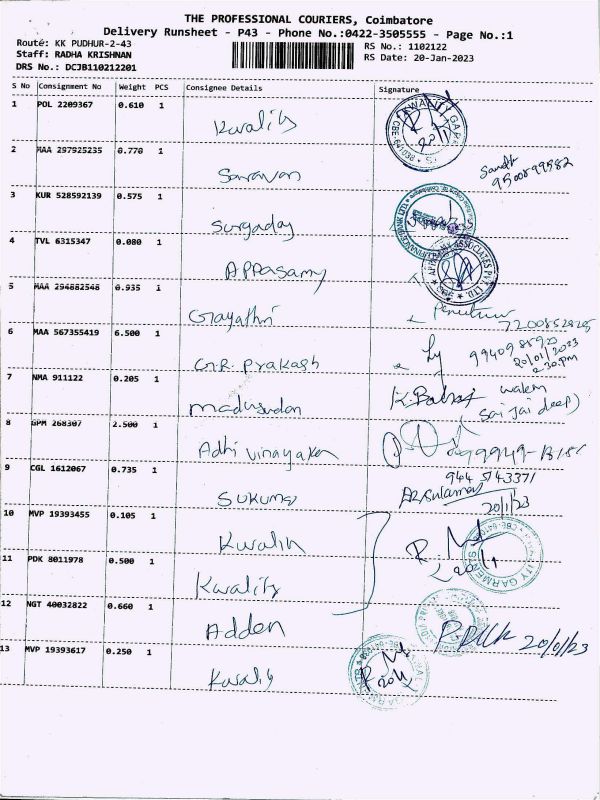 THE PROFESSIONAL COURIERS, Coimbatore
Delivery Runsheet - P43 - Phone No.:0422-3505555 - Page No.:1
Route: KK PUDHUR-2-43
RS No.: 1102122
Staff: RADHA KRISHNAN
RS Date: 20-Jan-2023
DRS No.: DCJB110212201
S No Consignment No Weight PCS Consignee Details Signature
1 POL 2209367 0.610 1 Kwality
2 MAA 297925235 0.770 1 Saravan
9500899582
3 KUR 528592139 0.575 1 Suryaday
4 TVL 6315347 0.080 1 Appasamy
APPASAMY ASSOCIATES PVT. LTD.
5 MAA 294882548 0.935 1 Gayathri
6 MAA 567355419 6.500 1 G.R. Prakash
20/01/2023
2.30.pm
7 NMA 911122 0.205 1 madusudan
(Sai Jai deep)
8 GPM 268307 2.500 1 Adhi vinayaka
9 CGL 1612067 0.735 1 Sukuma
20/1/23
10 MVP 19393455 0.105 1 Kwality
11 PDK 8011978 0.500 1 Kwality
12 NGT 40032822 0.660 1 Adden
20/01/23
13 MVP 19393617 0.250 1 Kwality